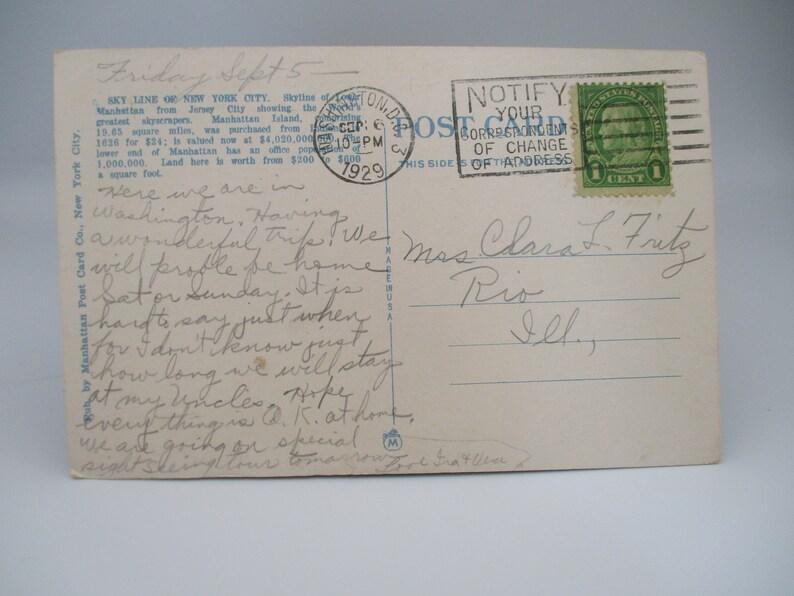 Friday Sept 5—
SKY LINE OF NEW YORK CITY. Skyline of Lower
Manhattan from Jersey City showing the World's
greatest skyscrapers. Manhattan Island, comprising
19.65 square miles, was purchased from Indians in
1626 for $24; is valued now at $4,020,000,000. The
lower end of Manhattan has an office population of
1,000,000. Land here is worth from $200 to $600
a square foot.
Here we are in
Washington. Having
a wonderful trip. We
will proble be home
Sat or Sunday. It is
hard to say just when
for I don't know just
how long we will stay
at my Uncles. Hope
everything is O.K. at home.
We are going on special
sight seeing tour tomorrow
Love Ira &
Pub. by Manhattan Post Card Co., New York City.
MADE IN USA
M
WASHINGTON, D.C. 3
SEP 6
10-PM
1929
NOTIFY
YOUR
CORRESPONDENTS
OF CHANGE
OF ADDRESS
POST CARD
THIS SIDE IS
UNITED STATES POSTAGE
1 CENT 1
Mrs Clara L. Fritz
Rio
Ill.,